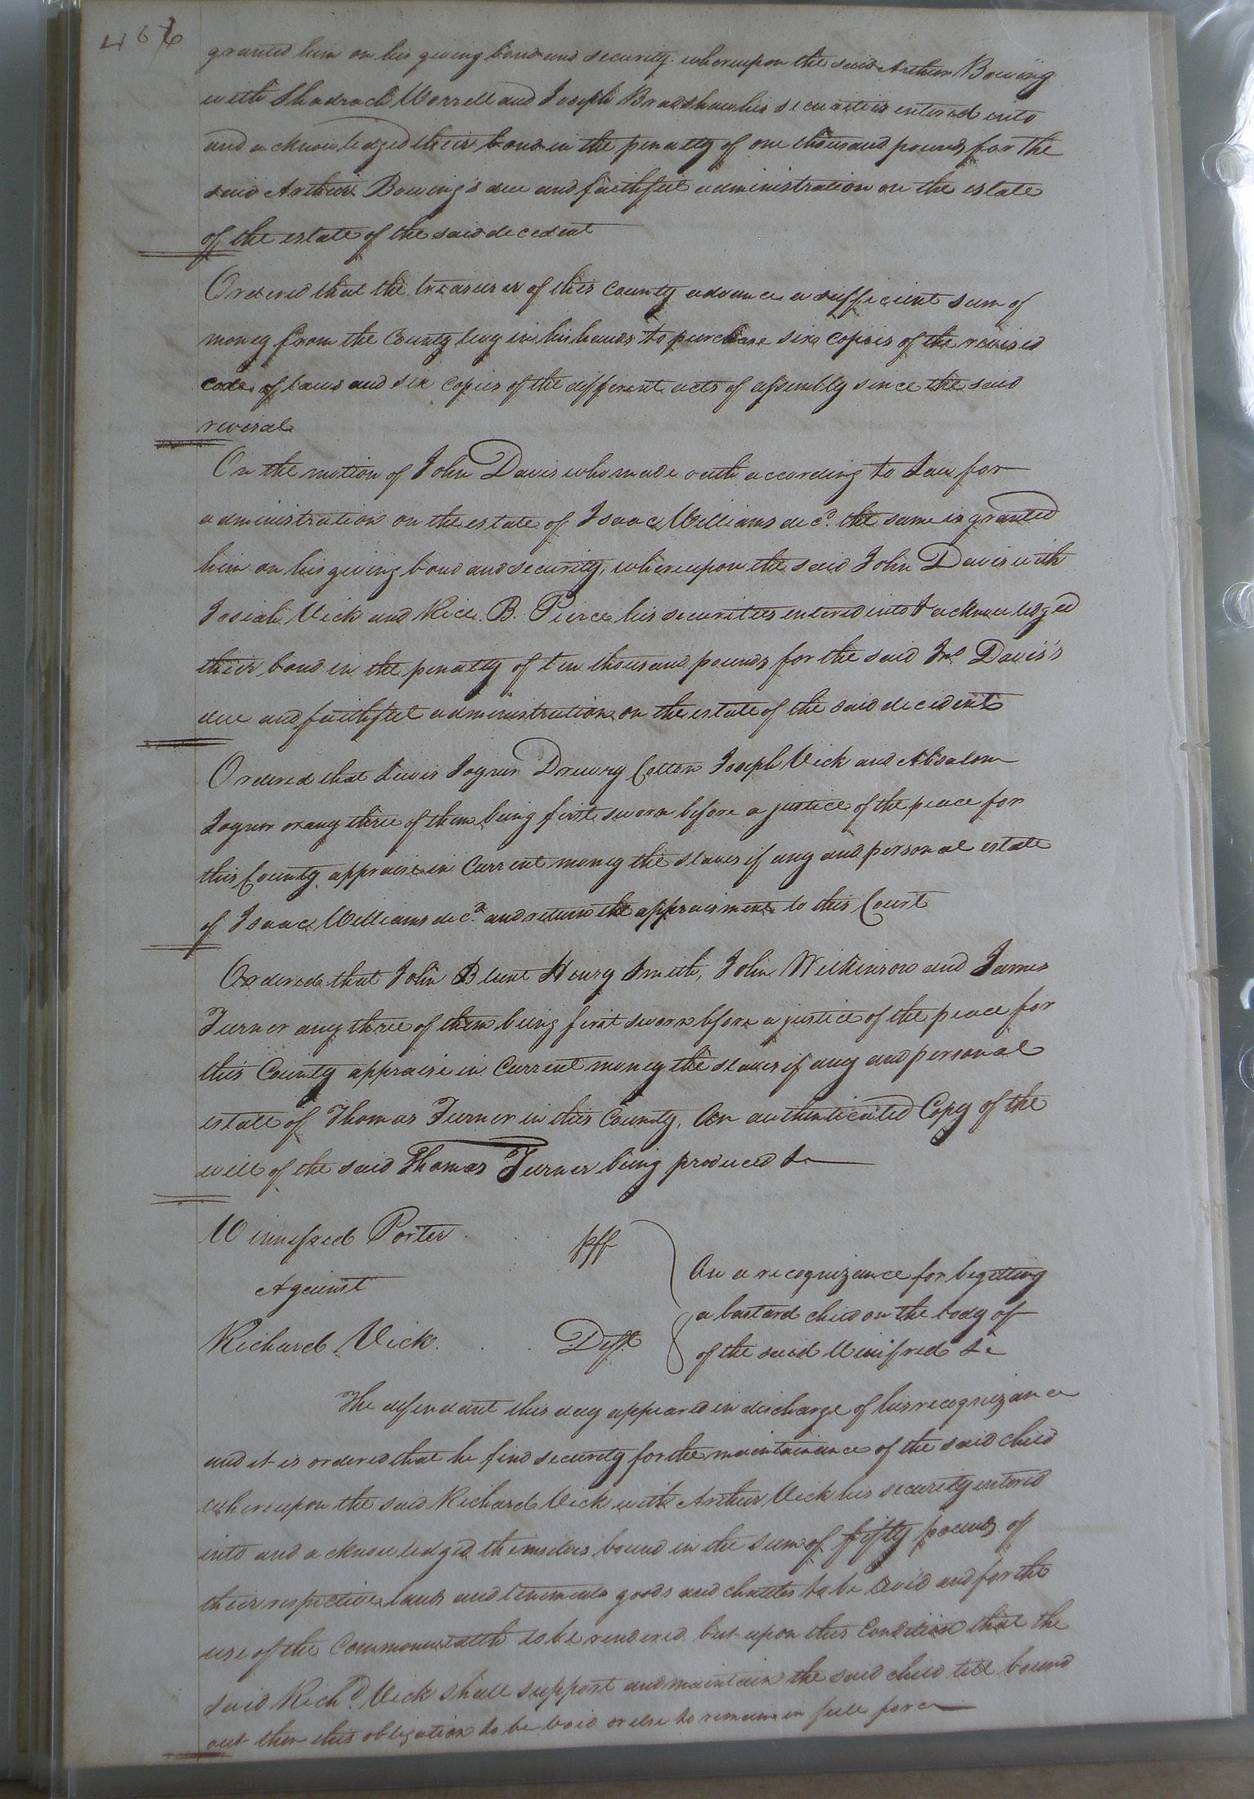 466
granted him on his giving bond and security. whereupon the said Arthur Bowing
with Shadrach Worrell and Joseph Bradshaw his securities entered into
and acknowledged their bond in the penalty of one thousand pounds for the
said Arthur Bowing's due and faithful administration on the estate
of the estate of the said decedent
Ordered that the treasurer of this County advance a sufficient sum of
money from the County levy in his hands to purchase six copies of the revised
code of laws and six copies of the different acts of assembly since the said
revisal
On the motion of John Davis who made oath according to Law for
administration on the estate of Isaac Williams decd. the same is granted
him on his giving bond and security, whereupon the said John Davis with
Josiah Vick and Rice B. Pierce his securities entered into & acknowledged
their bond in the penalty of ten thousand pounds for the said Jno. Davis's
due and faithful administration on the estate of the said decedent
Ordered that Lewis Joyner Drewry Cotton Joseph Vick and Absalom
Joyner or any three of them being first sworn before a justice of the peace for
this County appraise in Current money the slaves if any and personal estate
of Isaac Williams decd. and return the appraisment to this Court
Ordered that John Blunt Henry Smith, John Wilkinson and James
Turner any three of them being first sworn before a justice of the peace for
this County appraise in Current money the slaves if any and personal
estate of Thomas Turner in this County, An authenticated Copy of the
will of the said Thomas Turner being produced &c
Winnifred Porter plff
Against
Richard Vick Deft
On a recognizance for begetting
a bastard child on the body of
of the said Winifred &c
The defendant this day appeared in discharge of his recognizance
and it is ordered that he find security for the maintainance of the said child
whereupon the said Richard Vick with Arthur Vick his security entered
into and acknowledged themselves bound in the sum of fifty pounds of
their respective lands and tenements goods and chattes to be levid and for the
use of the Commonwealth to be rendered but upon this Condition that the
said Richd. Vick shall support and maintain the said child till bound
out then this obligation to be void or else to remain in full force